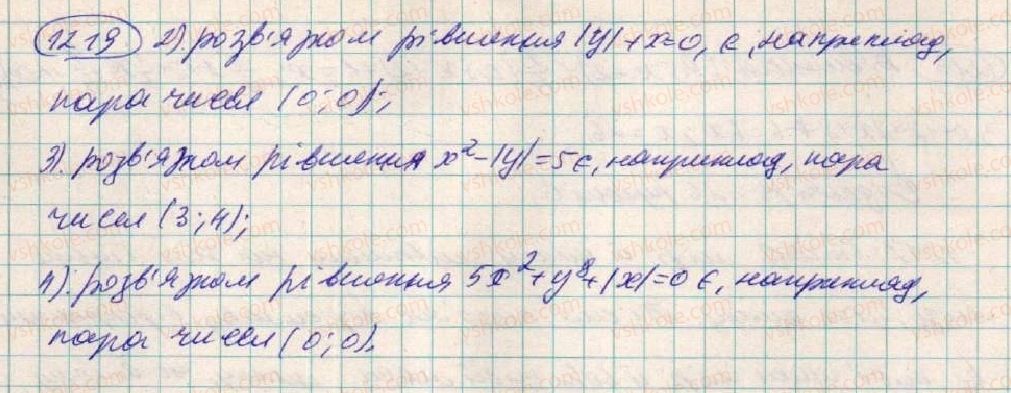 1219 2). розв'язком рівняння |y|+x=0, є, наприклад,
пара чисел (0;0);
3). розв'язком рівняння x²-|y|=5 є, наприклад, пара
чисел (3;4);
4). розв'язком рівняння 5x²+y⁸+|x|=0 є, наприклад,
пара чисел (0;0).